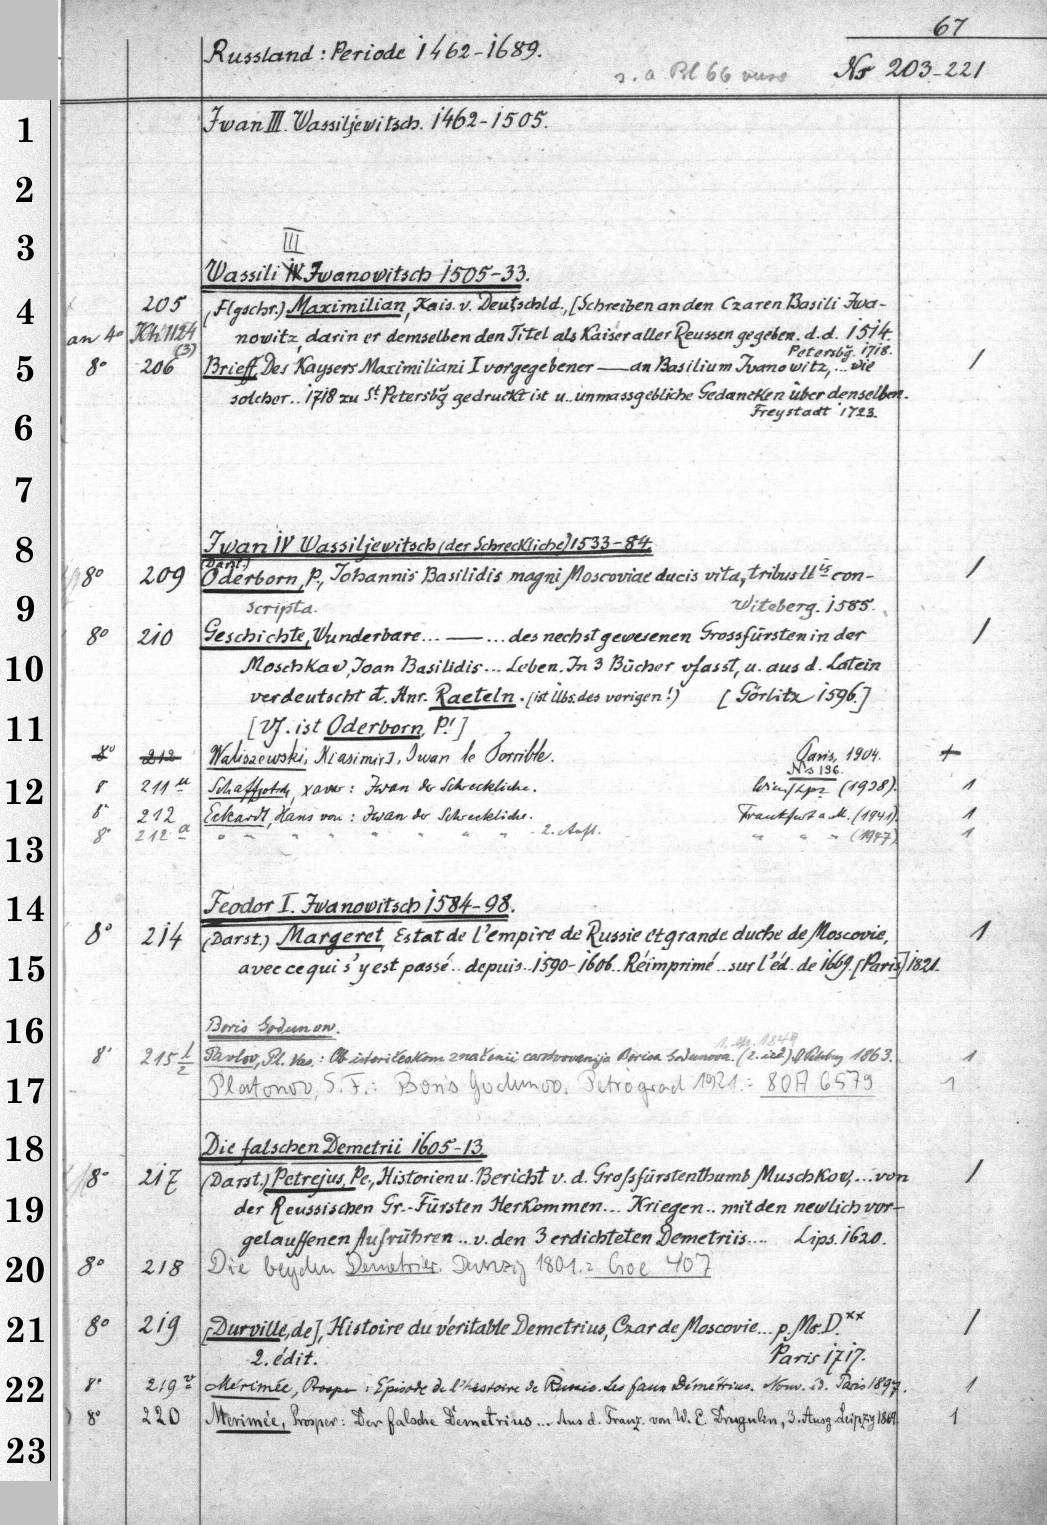 67
Russland: Periode 1462-1689.
s. a. Bl 66 Nr 203-221
1 Iwan III. Wassiljewitsch. 1462-1505.
2
3
III
Wassili IV Iwanowitsch 1505-33.
4 205 (Flgschr.) Maximilian, Kais. v. Deutschld., [Schreiben an den Czaren Basili Iwa-
an 4° Kh 1124 (3) nowitz, darin er demselben den Titel als Kaiser aller Reussen gegeben. d.d. 1514.
Petersbg. 1718.
5 8° 206 Brieff, Des Kaysers Maximiliani I vorgegebener — an Basilium Ivanowitz, ... die 1
solcher .. 1718 zu St. Petersbg gedruckt ist u.. unmassgebliche Gedancken über denselben.
6 Freystadt 1723.
7
8 Iwan IV Wassiljewitsch (der Schreckliche) 1533-84.
(Darst.)
8° 209 Oderborn, P., Johannis Basilidis magni Moscoviae ducis vita, tribus ll is con- 1
9 scripta. Witeberg. 1585.
8° 210 Geschichte, Wunderbare ... — ... des nechst gewesenen Grossfürsten in der 1
10 Moschkav, Joan Basilidis ... Leben. In 3 Bücher vfasst, u. aus d. Latein
verdeutscht d. Hnr. Raeteln. (ist Übs. des vorigen!) [Görlitz 1596.]
11 [Vf. ist Oderborn, P.!]
8° 212 Waliszewski, K[asimir], Iwan le Terrible. Paris, 1904. +
Ns 196.
12 8° 211 a Schaffgotsch, Xaver: Iwan der Schreckliche. Wien/Lpz (1938). 1
8° 212 Eckardt, Hans von: Iwan der Schreckliche. Frankfurt a. M. (1941). 1
13 8° 212 a " " " " " " " - 2. Aufl. " " " (1947). 1
14 Feodor I. Iwanowitsch 1584-98.
8° 214 (Darst.) Margeret, Estat de l'empire de Russie et grande duche de Moscovie, 1
15 avec ce qui s'y est passé .. depuis .. 1590-1606. Réimprimé .. sur l'éd. de 1669. [Paris] 1821.
16 Boris Godunow.
1849
8° 215 1/2 Pavlov, Pl. Vas.: Ob istoričeskom značenii carstvovanija Borisa Godunova. (2. izd.) Petersburg 1863. 1
17 Platonov, S. F.: Boris Godunov. Petrograd 1921. = 80 A 6579 1
18 Die falschen Demetrii 1605-13.
8° 217 (Darst.) Petrejus, Pe., Historien u. Bericht v. d. Grossfürstenthumb Muschkow, ... von 1
19 der Reussischen Gr.-Fürsten Herkommen ... Kriegen .. mit den newlich vor-
gelauffenen Aufrühren .. v. den 3 erdichteten Demetriis .... Lips. 1620.
20 8° 218 Die beyden Demetrier. Danzig 1801. = Goe 407
21 8° 219 [Durville, de], Histoire du véritable Demetrius, Czar de Moscovie ... p. Mr. D.xx 1
2. édit. Paris 1717.
22 8° 219 Mérimée, Prosper: Episode de l'histoire de Russie. Les faux Démétrius. Nouv. éd. Paris 1897. 1
8° 220 Merimée, Prosper: Der falsche Demetrius ... Aus d. Franz. von W. E. Drugulin, 3. Ausg. Leipzig 1869. 1
23